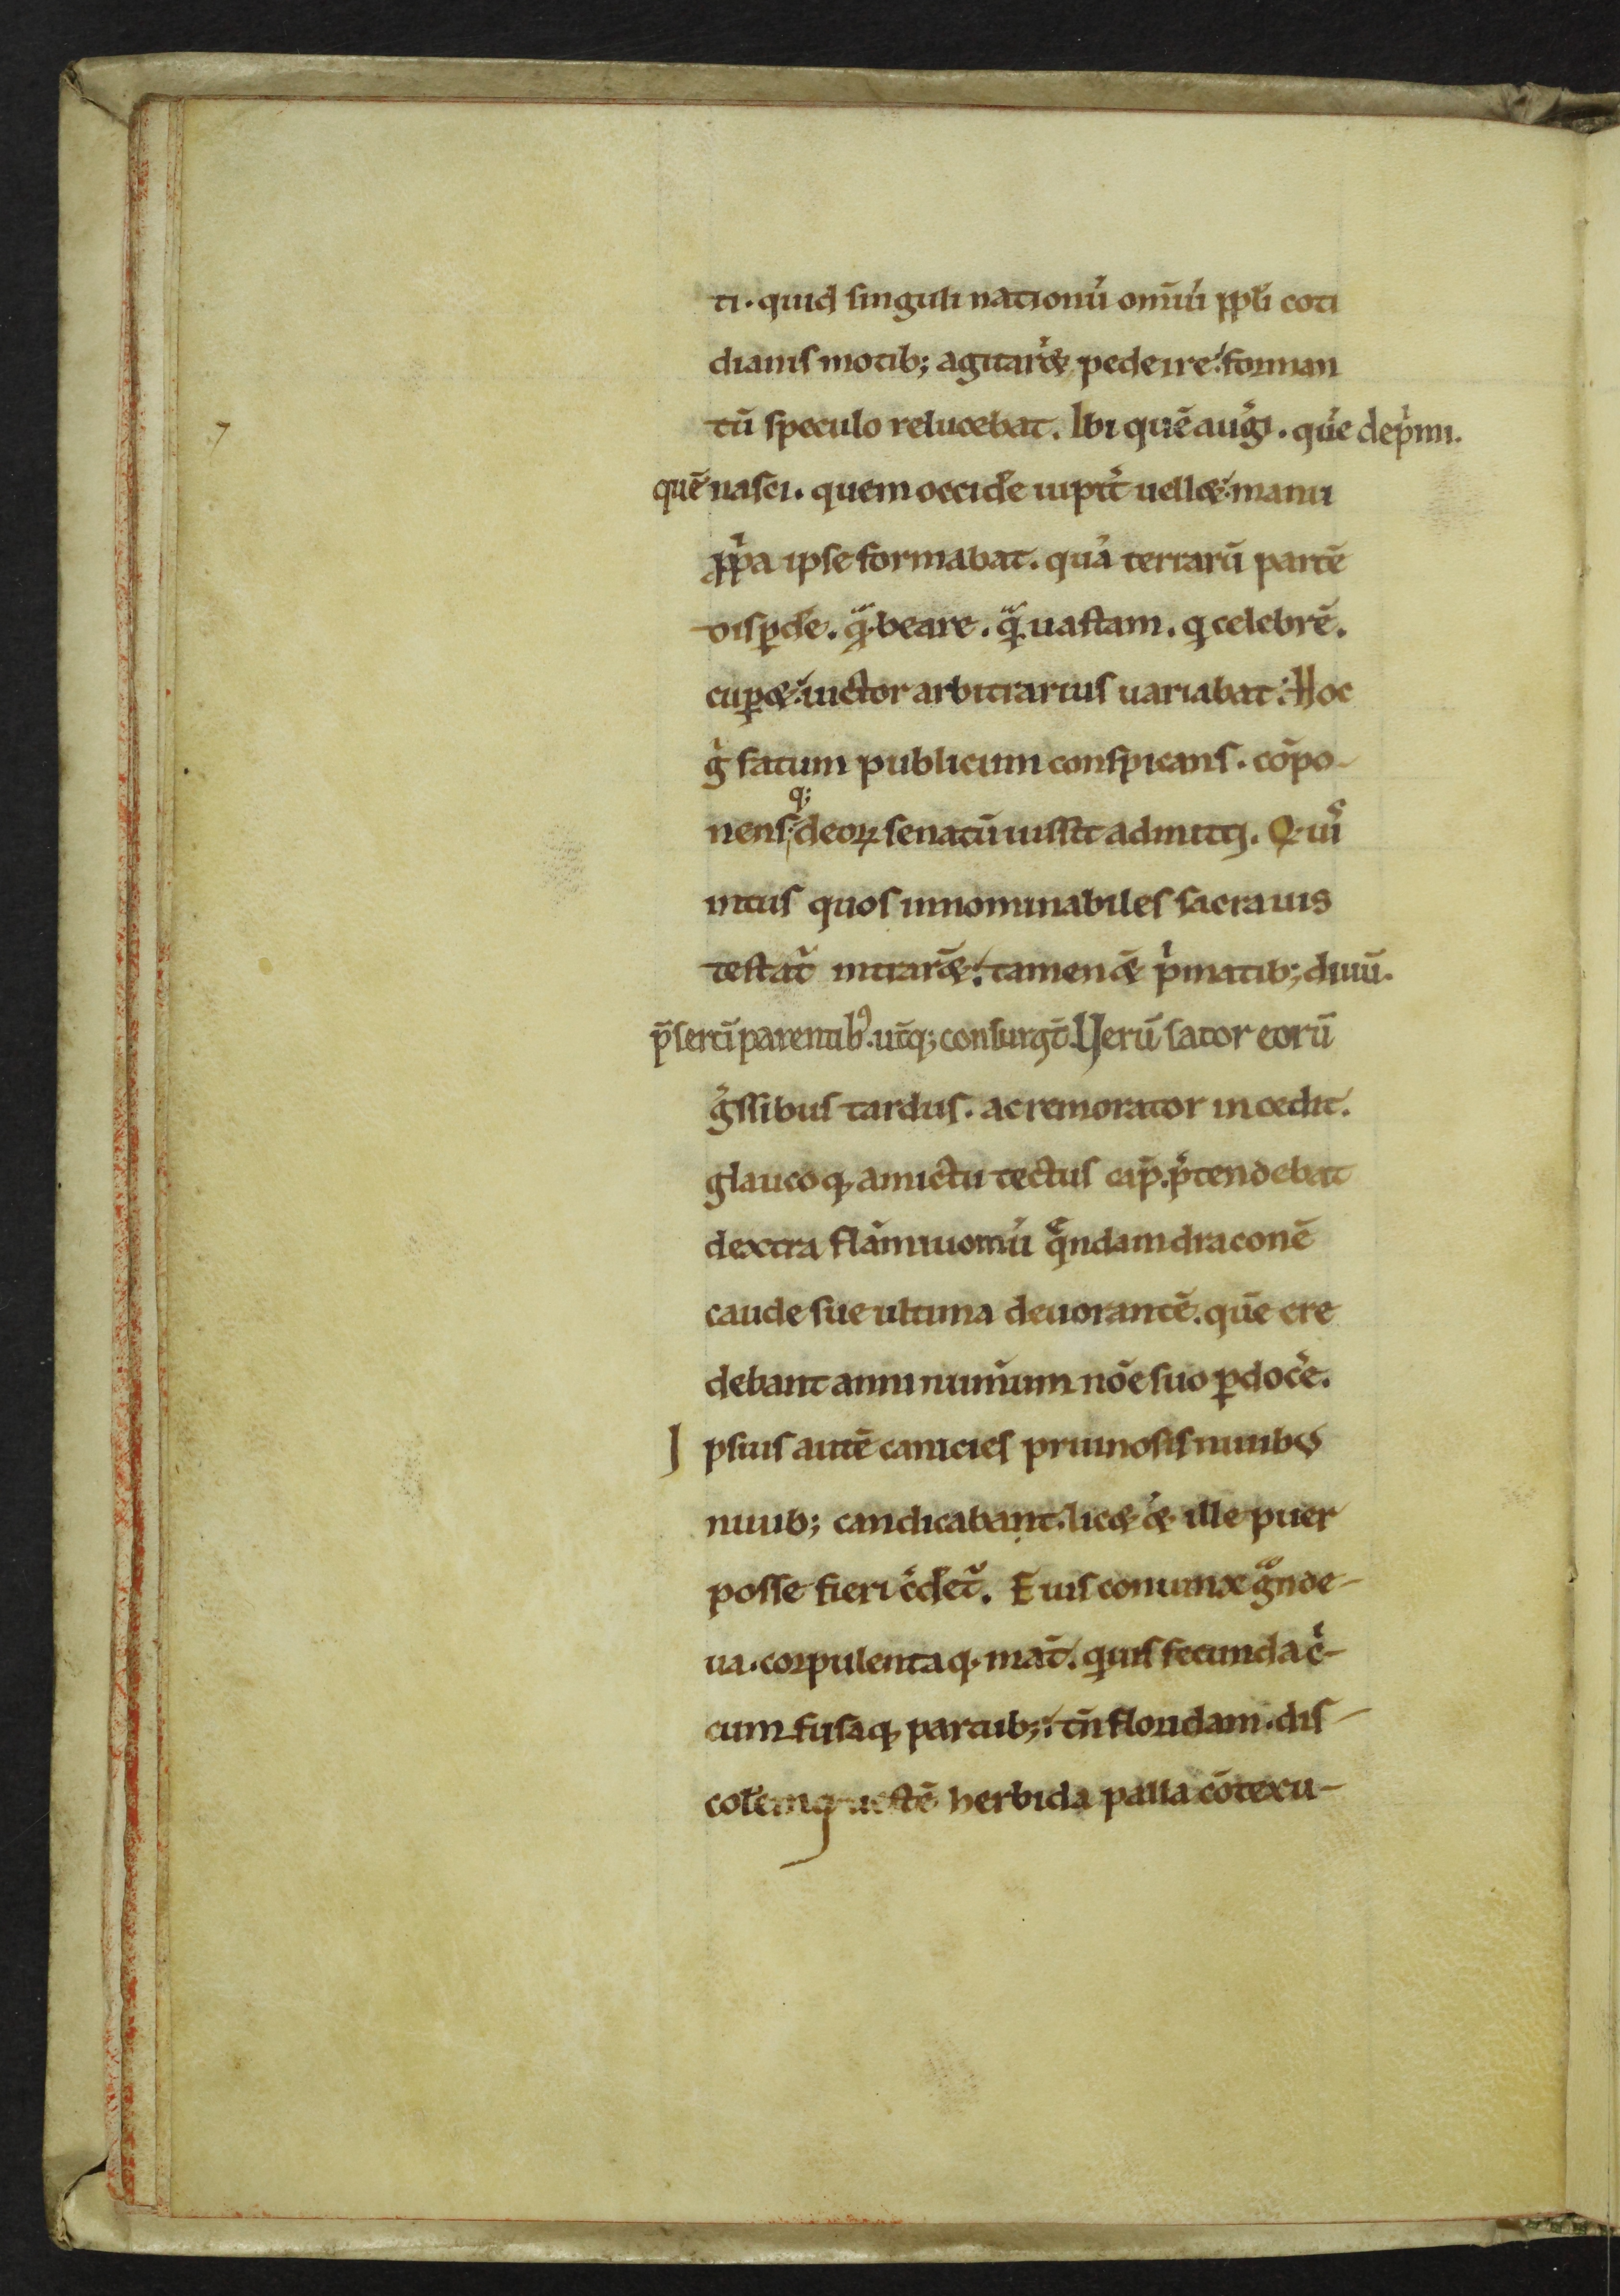 ti. quid singuli nationū omīū ppłi coti
dianis motib; agitarēt pede ire. forman
tū speculo relucebat. Ibi quē aug̃i. quē dep̃mi.
quē nasci. quem occidẽ iupit̃ uellet. manu
pp̃a ipse formabat. quā terrarū partē
disp̱de. q̃. beare. q̃. uastam. q celebrē.
cup̱et. fictor arbitrarius uariabat. Hoc
g̃ fatum publicum conspicans. cōpo-
nens q; deoꝝ senatū iussit admitti. Q. ui
ntus quos innominabiles sacrauis
testat̃ intrarēt. tamen et p̃matib; diuū.
p̃sertī parentib9. ut̃q; consurgt̄. Uerū sator eorū
g̃ssibus tardus. ac remorator incedit.
glaucoq, amictu tectus cap̄. p̃tendebat
dextra flāmiuomū q̃ndam draconē
caude sue ultima deuorantē. quē cre
debant anni num̃um nōe suo p̱docẽ.
Ipsius autē canicies pruinosis niuib9
niuib; candicabant. licet et ille puer
posse fieri c̃det̃. Eius coniunx g̃nde-
ua. corpulentaq, mat̄. quis fecunda c̃-
cumfusaq, partub; tn̄ floridam. dis
colẽmq, uestē herbida palla cōtexu-